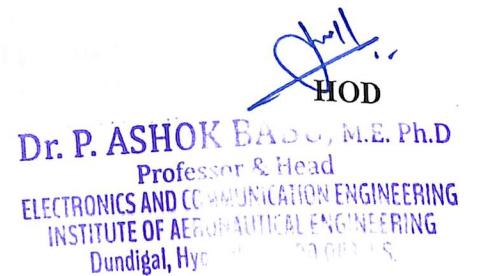 HOD
Dr. P. ASHOK BABU, M.E. Ph.D
Professor & Head
ELECTRONICS AND COMMUNICATION ENGINEERING
INSTITUTE OF AERONAUTICAL ENGINEERING
Dundigal,